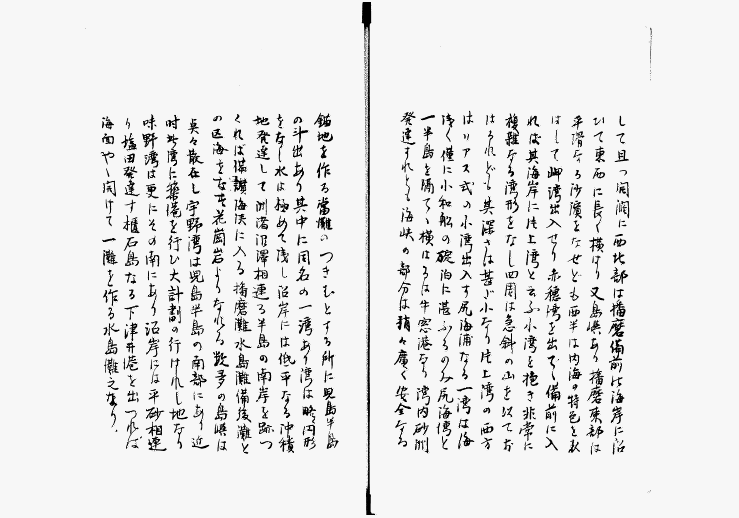 して且つ同濶に西北部は播磨備前は海岸に沿
ひて東西に長く横り又島嶼あり播磨東部は
平滑なる沙濱をなせども西半は内海の特色を表
はして岬湾出入せり赤穂湾を出でて備前に入
れば其海岸に片上湾と云ふ小湾を抱き非常に
複雑なる湾形をなし四周は急斜の山を以てお
はるれども其深さは甚だ小なり片上湾の西方
はリアス式の小湾出入す尻海浦なる一湾は海
浅く僅に小和船の碇泊に甚ふるのみ尻海湾と
一半島を隔てて横はるは牛窓港なり湾内砂洲
発達すれども海峡の部分は稍々廣く安全なる
錨地を作る當灘のつきむとする所に児島半島
の斗出あり其中に同名の一湾あり湾は略円形
をなし水は極めて浅し沿岸には低平なる沖積
地発達して洲渚沼澤相連る半島の南岸を跡つ
くれば備讃海峡に入る播磨灘水島灘備後灘と
の区海をなす花崗岩よりなれる数多の島嶼は
点々散在し宇野湾は児島半島の南部にあり近
時此湾に築港を行ひ大計劃の行はれし地なり
味野湾は更にその南にあり沿岸には平砂相連
り塩田発達す櫃石島なる下津井港を出づれば
海面やゝ開けて一灘を作る水島灘之なり.